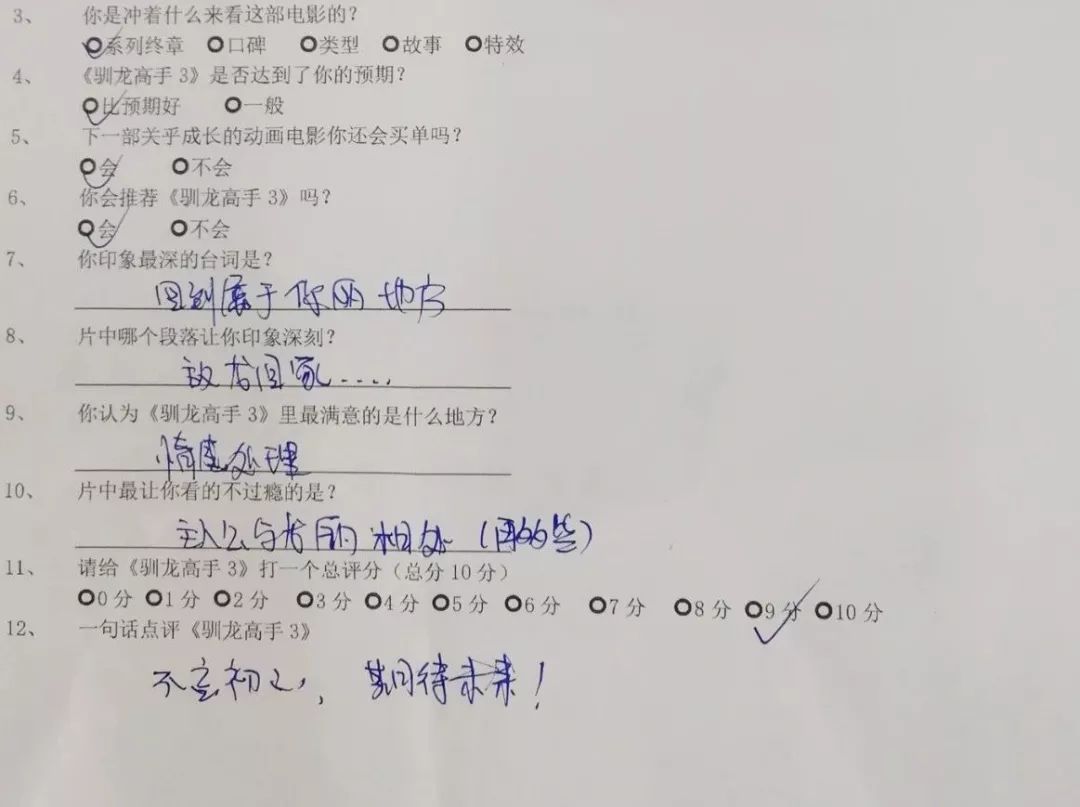 3、 你是冲着什么来看这部电影的？
系列终章 口碑 类型 故事 特效
4、 《驯龙高手 3》是否达到了你的预期？
比预期好 一般
5、 下一部关乎成长的动画电影你还会买单吗？
会 不会
6、 你会推荐《驯龙高手 3》吗？
会 不会
7、 你印象最深的台词是？
回到属于你的地方
8、 片中哪个段落让你印象深刻？
放龙回家....
9、 你认为《驯龙高手 3》里最满意的是什么地方？
情感处理
10、 片中最让你看的不过瘾的是？
主人公与龙的相处（再多些）
11、 请给《驯龙高手 3》打一个总评分（总分 10 分）
0 分 1 分 2 分 3 分 4 分 5 分 6 分 7 分 8 分 9 分 10 分
12、 一句话点评《驯龙高手 3》
不忘初心，期待未来！